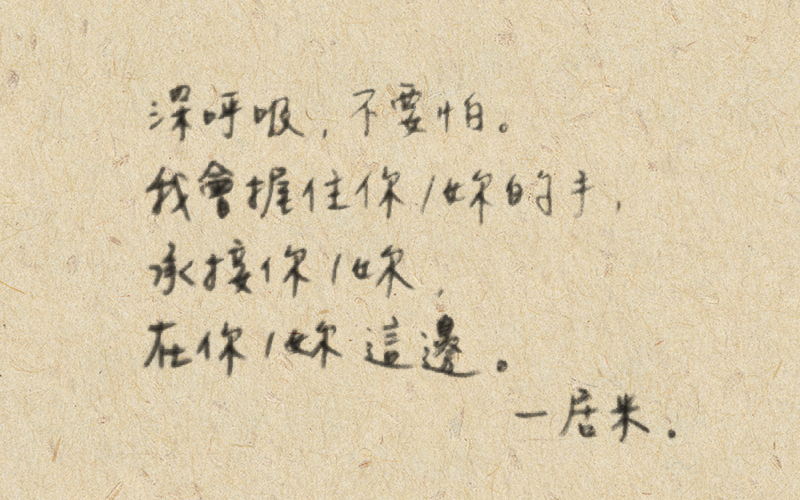 深呼吸,不要怕。
我會握住你/妳的手,
承接你/妳,
在你/妳這邊。
—居米.